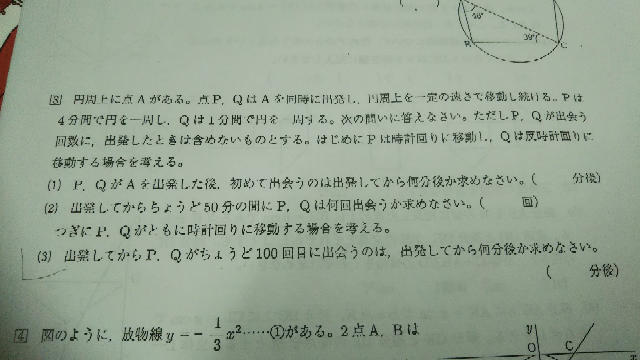 46°
R 39° C
[3] 円周上に点Aがある。点P, QはAを同時に出発し, 円周上を一定の速さで移動し続ける。Pは
4分間で円を一周し, Qは1分間で円を一周する。次の問いに答えなさい。ただしP, Qが出会う
回数に, 出発したときは含めないものとする。はじめにPは時計回りに移動し, Qは反時計回りに
移動する場合を考える。
(1) P, QがAを出発した後, 初めて出会うのは出発してから何分後か求めなさい。( 分後)
(2) 出発してからちょうど50分の間にP, Qは何回出会うか求めなさい。( 回)
つぎにP, Qがともに時計回りに移動する場合を考える。
(3) 出発してからP, Qがちょうど100回目に出会うのは, 出発してから何分後か求めなさい。
( 分後)
4 図のように, 放物線 y = - 1/3 x²……①がある。2点A, Bは
y
O C